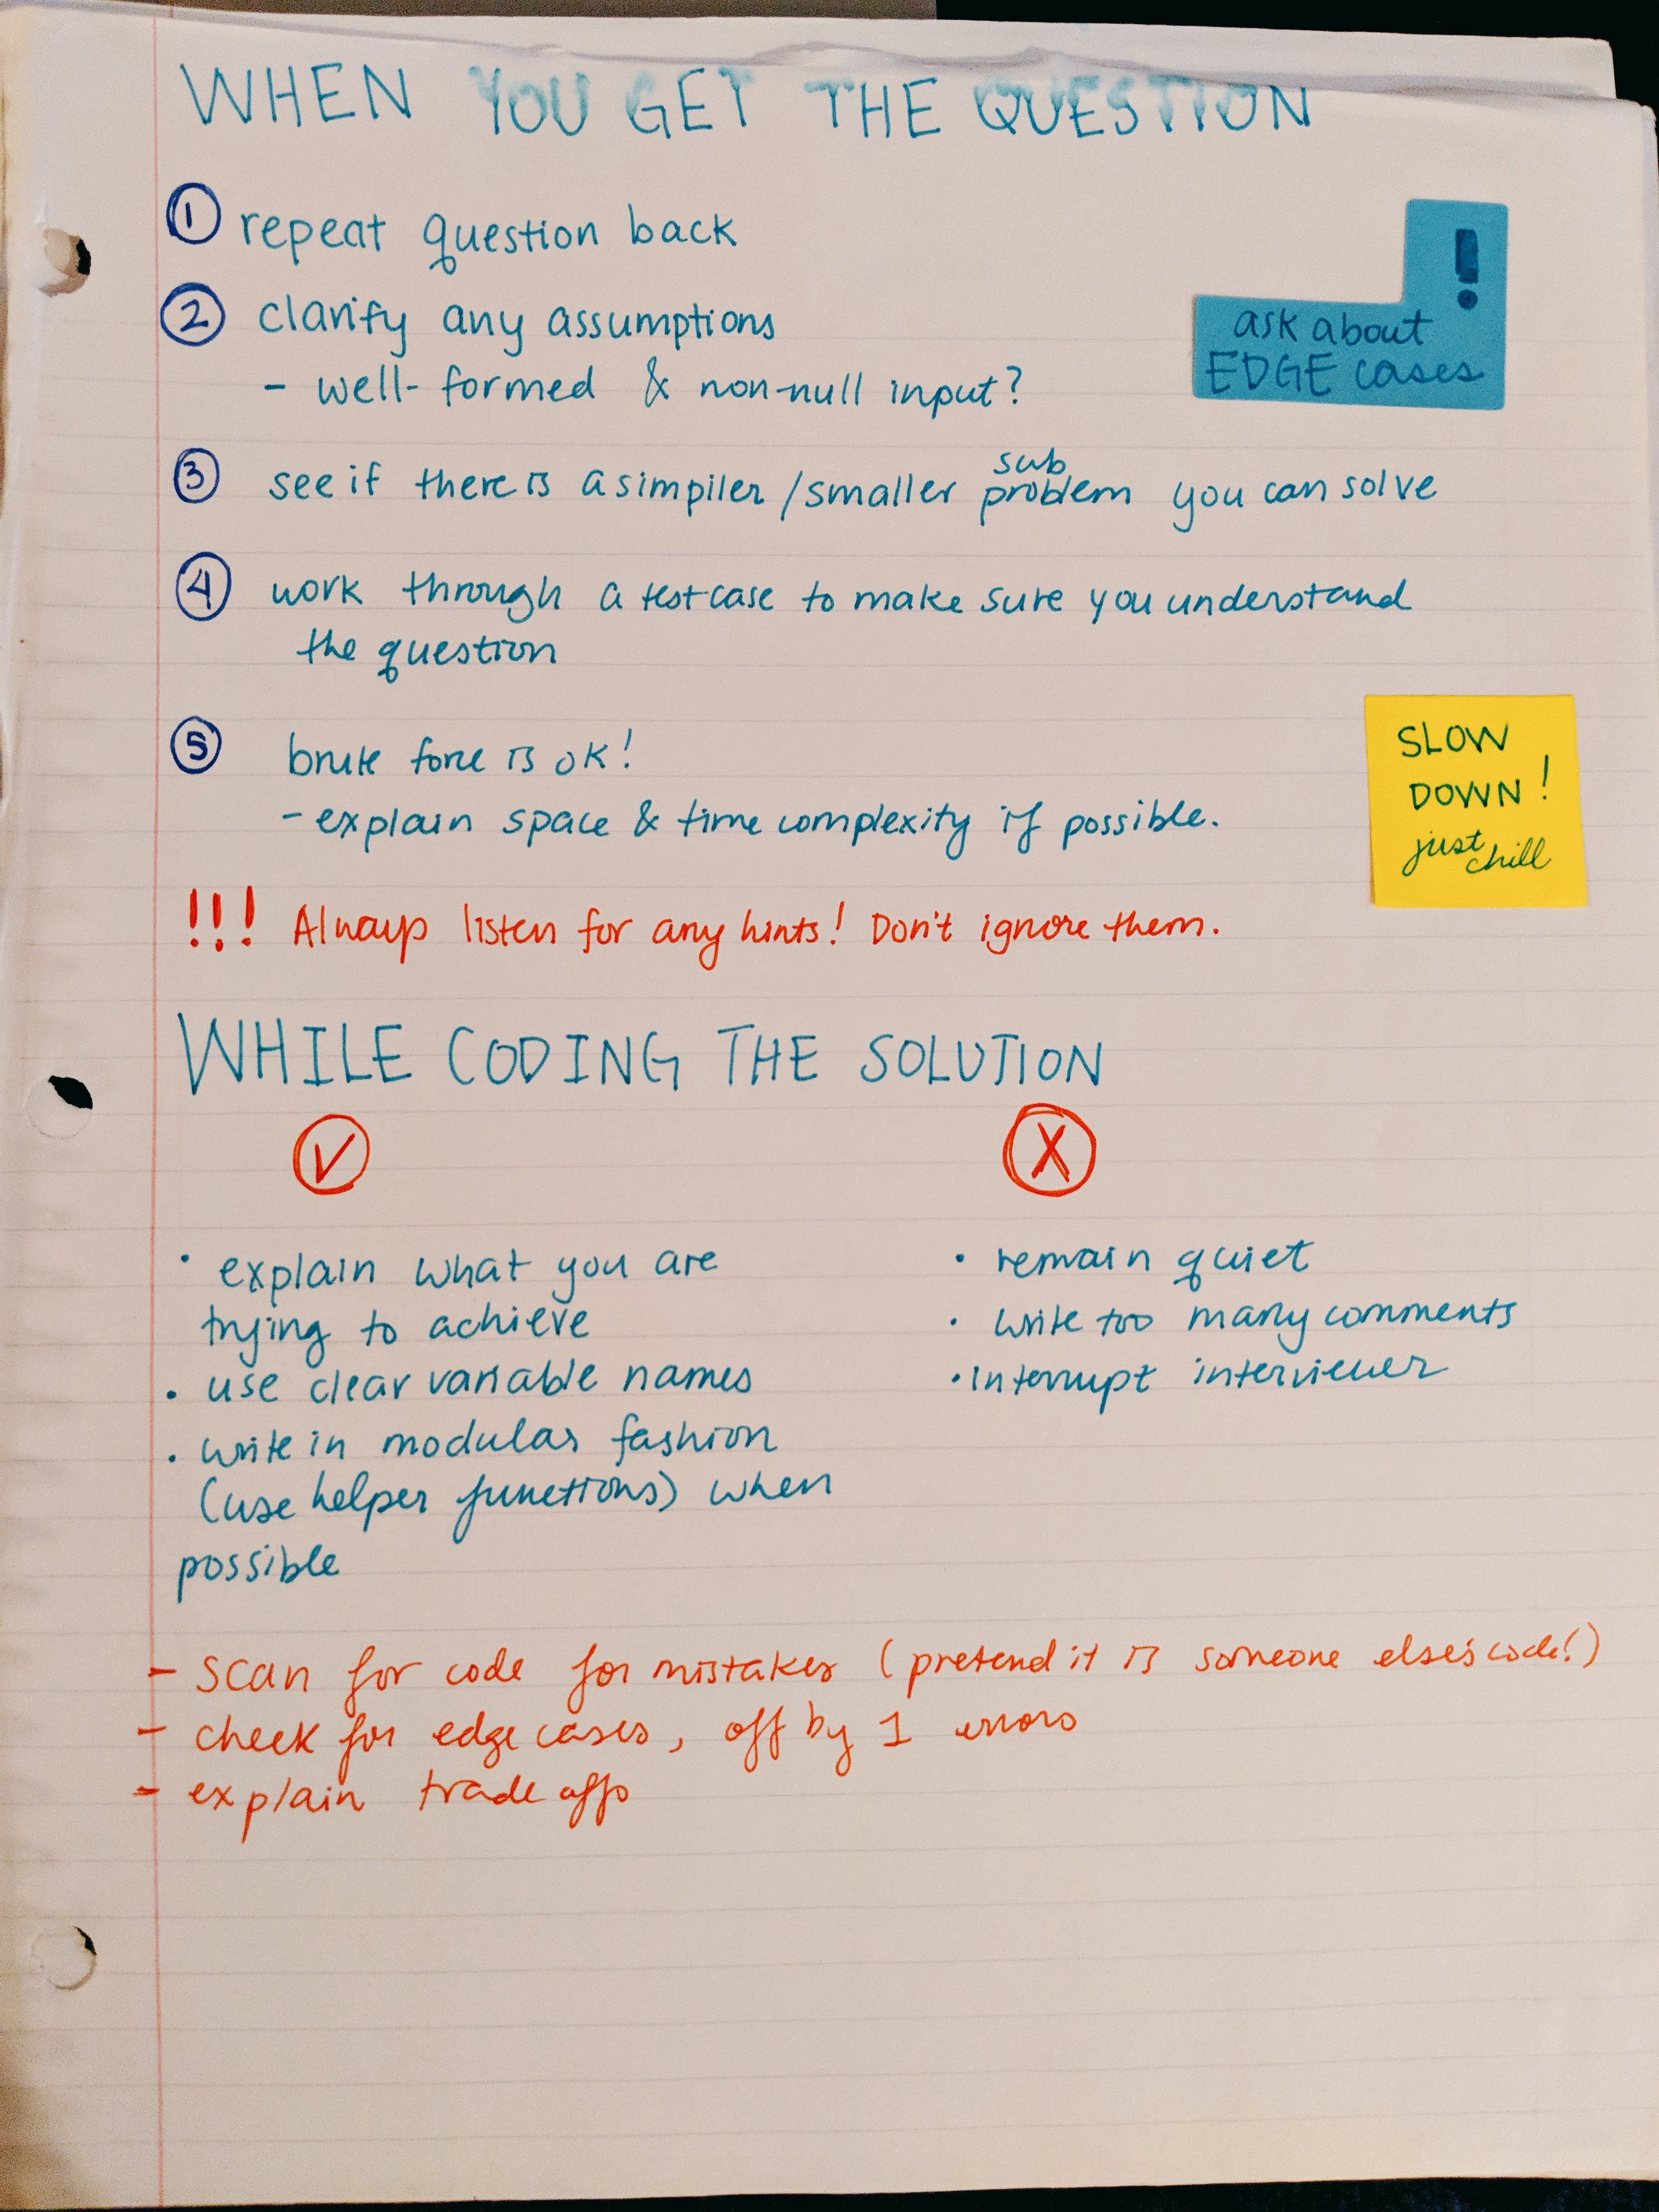 WHEN YOU GET THE QUESTION
① repeat question back
② clarify any assumptions
- well-formed & non-null input?
!
ask about
EDGE cases
③ see if there is a simpiler/smaller subproblem you can solve
④ work through a testcase to make sure you understand
the question
⑤ brute force is ok!
- explain space & time complexity if possible.
SLOW
DOWN!
just chill
!!! Always listen for any hints! Don't ignore them.
WHILE CODING THE SOLUTION
✓
X
• explain what you are
trying to achieve
• use clear variable names
• write in modular fashion
(use helper functions) when
possible
• remain quiet
• write too many comments
• interrupt interviewer
- scan for code for mistakes (pretend it is someone else's code!)
- check for edge cases, off by 1 errors
- explain trade offs